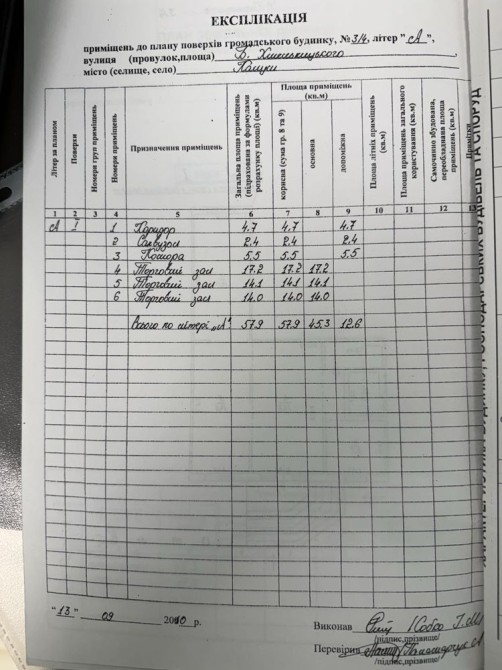 ЕКСПЛІКАЦІЯ
приміщень до плану поверхів громадського будинку, № 3/4, літер "А",
вулиця (провулок,площа) Б. Хмельницького
місто (селище, село)
Літер за планом
Поверхи
Номери груп приміщень
Номери приміщень
Призначення приміщень
Загальна площа приміщень (підрахована за формулами розрахунку площі) (кв.м)
Площа приміщень (кв.м)
корисна (сума гр. 8 та 9)
основна
допоміжна
Площа літніх приміщень (кв.м)
Площа приміщень загального користування (кв.м)
Самочинно збудована, переобладнана площа приміщень (кв.м)
Примітки
1 2 3 4 5 6 7 8 9 10 11 12 13
А 1 1 Коридор 4.7 4.7 4.7
2 Санвузол 2.4 2.4 2.4
3 Комора 5.5 5.5 5.5
4 Торговий зал 17.2 17.2 17.2
5 Торговий зал 14.1 14.1 14.1
6 Торговий зал 14.0 14.0 14.0
Всього по літері „А" 57.9 57.9 45.3 12.6
"13" 09 2010 р.
Виконав
/підпис,прізвище/
Перевірив
/підпис,прізвище/
БУДИНКУ, ГОСПОДАРСЬКИХ БУДІВЕЛЬ ТА СПОРУД